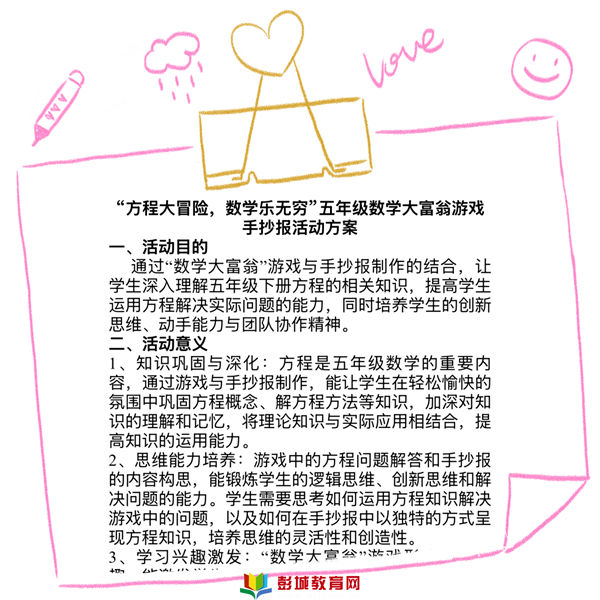 love
“方程大冒险，数学乐无穷”五年级数学大富翁游戏
手抄报活动方案
一、活动目的
通过“数学大富翁”游戏与手抄报制作的结合，让
学生深入理解五年级下册方程的相关知识，提高学生
运用方程解决实际问题的能力，同时培养学生的创新
思维、动手能力与团队协作精神。
二、活动意义
1、知识巩固与深化：方程是五年级数学的重要内
容，通过游戏与手抄报制作，能让学生在轻松愉快的
氛围中巩固方程概念、解方程方法等知识，加深对知
识的理解和记忆，将理论知识与实际应用相结合，提
高知识的运用能力。
2、思维能力培养：游戏中的方程问题解答和手抄报
的内容构思，能锻炼学生的逻辑思维、创新思维和解
决问题的能力。学生需要思考如何运用方程知识解决
游戏中的问题，以及如何在手抄报中以独特的方式呈
现方程知识，培养思维的灵活性和创造性。
3、学习兴趣激发：“数学大富翁”游戏形
彭城教育网